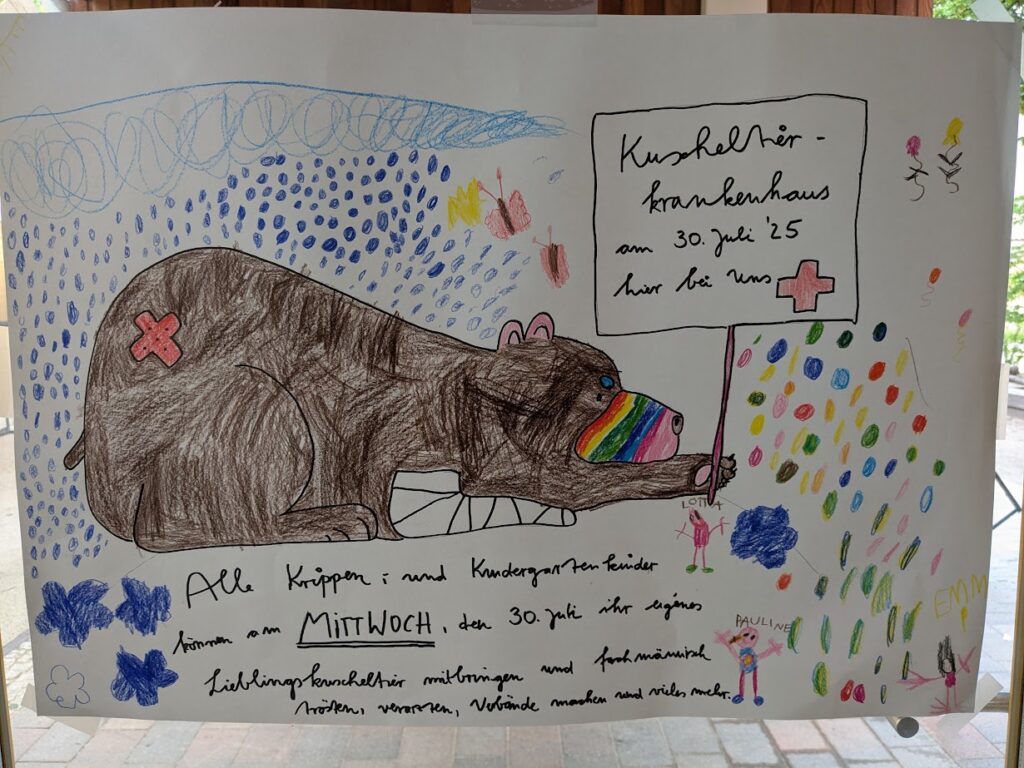 Kuscheltier-
krankenhaus
am 30. Juli '25
hier bei uns
LOTTA
Alle Krippen- und Kindergartenkinder
können am MITTWOCH, den 30. Juli ihr eigenes
Lieblingskuscheltier mitbringen und fachmännisch
trösten, verarzten, Verbände machen und vieles mehr.
PAULINE
EMMI